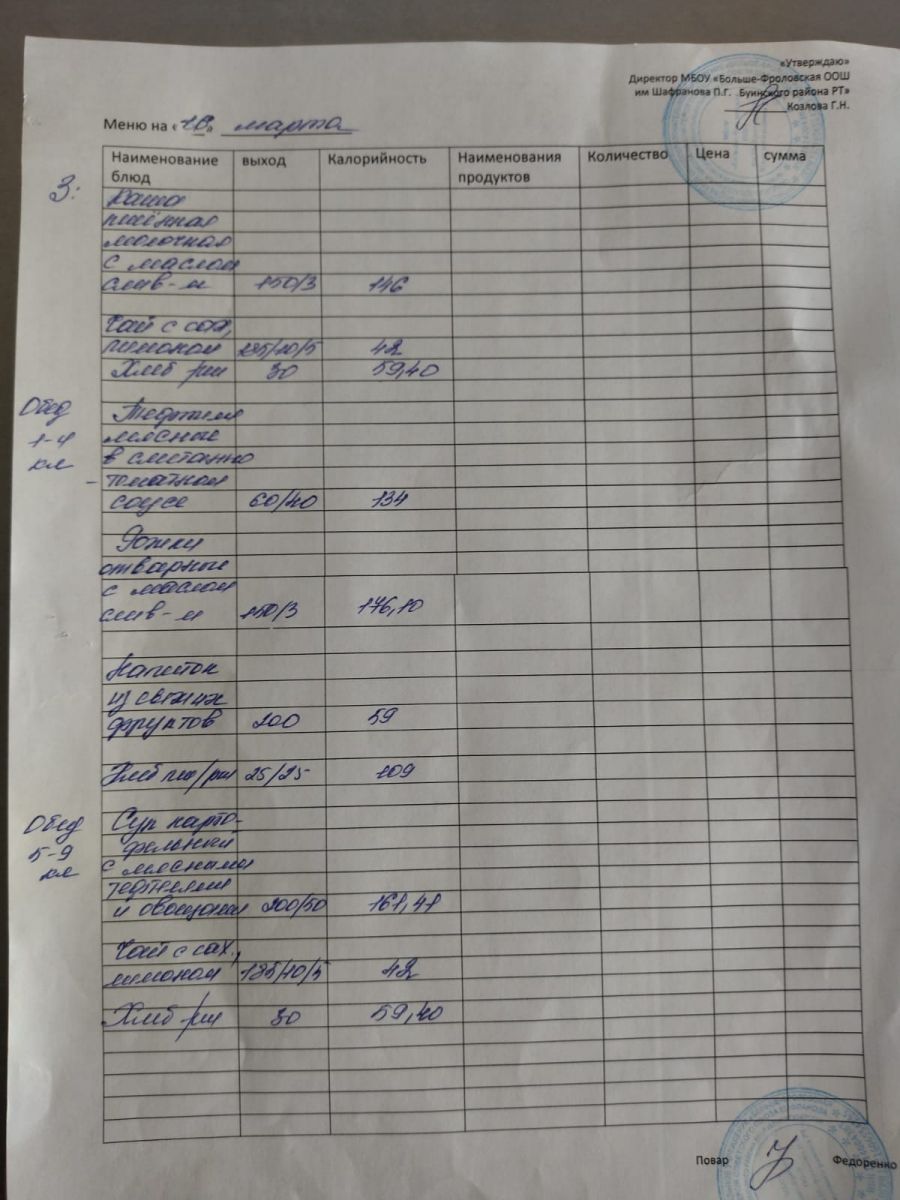 «Утверждаю»
Директор МБОУ «Больше-Фроловская ООШ
им Шафранова П.Г. Буинского района РТ»
Козлова Г.Н.
Меню на « » марта
Наименование блюд выход Калорийность Наименования продуктов Количество Цена сумма
З: Каша
пшённая
молочная
с маслом
слив-м 150/3 146
Чай с сах,
лимоном 185/10/5 42
Хлеб рж 30 59,40
Обед Тефтели
1-4 мясные
кл в сметанно
- томатном
соусе 60/40 134
Рожки
отварные
с маслом
слив-м 150/3 176,10
Напиток
из свежих
фруктов 200 59
Хлеб пш/рж 25/25 109
Обед Суп карто-
5-9 фельный
кл с мясными
тефтелями
и овощами 200/50 161,41
Чай с сах.,
лимоном 185/10/5 42
Хлеб рж 30 59,40
Повар Федоренко